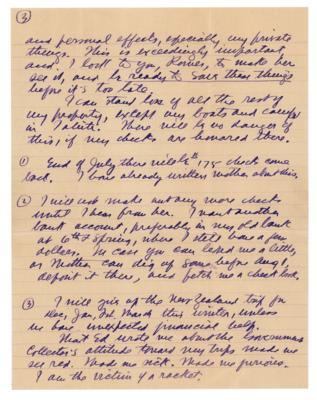 (3)
and personal effects, especially my private
things. This is exceedingly important,
and I look to you, Romer, to make her
see it, and be ready to save these things
before it's too late.
I can stand loss of all the rest of
my property, except my boats and camp
in Tahiti. There will be no danger of
this, if my checks are honored there.
(1) End of July there will be 175 check come
back. I have already written mother about this.
(2) I will not make out any more checks
until I hear from her. I want another
bank account, preferably in my old bank
at 6th & Spring, where I still have a few
dollars. In case you can lend me a little,
or Mother can dig up some before Aug 1,
deposit it there, and fetch me a check book.
(3) I will give up the New Zealand trip for
Dec, Jan, Feb, March this winter, unless
we have unexpected financial help.
What Ed wrote me about the Government
Collector's attitude toward my trips made me
see red. Made me sick. Made me furious.
I am the victim of a racket.